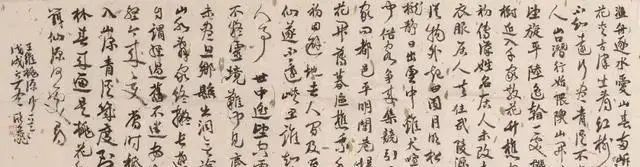 漁舟逐水愛山春兩
花夾古津坐看紅樹
不知遠行盡青溪不
人山口潛行始隈隩山開
望旋平陸遙看一處
樹近入千家散花竹樵
初傳漢姓名居人未改
衣服居人共住武陵源
從物外起田園月明松
櫳靜日出雲中雞犬喧
俗客爭來集競引
家問都邑平明閭巷
花開薄暮漁樵乘
初因避地去人間及至
仙遂不還峽裡誰知
人事 世中遙望空
不疑靈境難聞見塵
未盡思鄉縣出洞無論
山水辭家終擬長游
自謂經過舊不迷安知
今來變當時只記
入山深青溪幾度到雲
林春來遍是桃花水
辨仙源何處尋
王維桃源行一首
戊戌